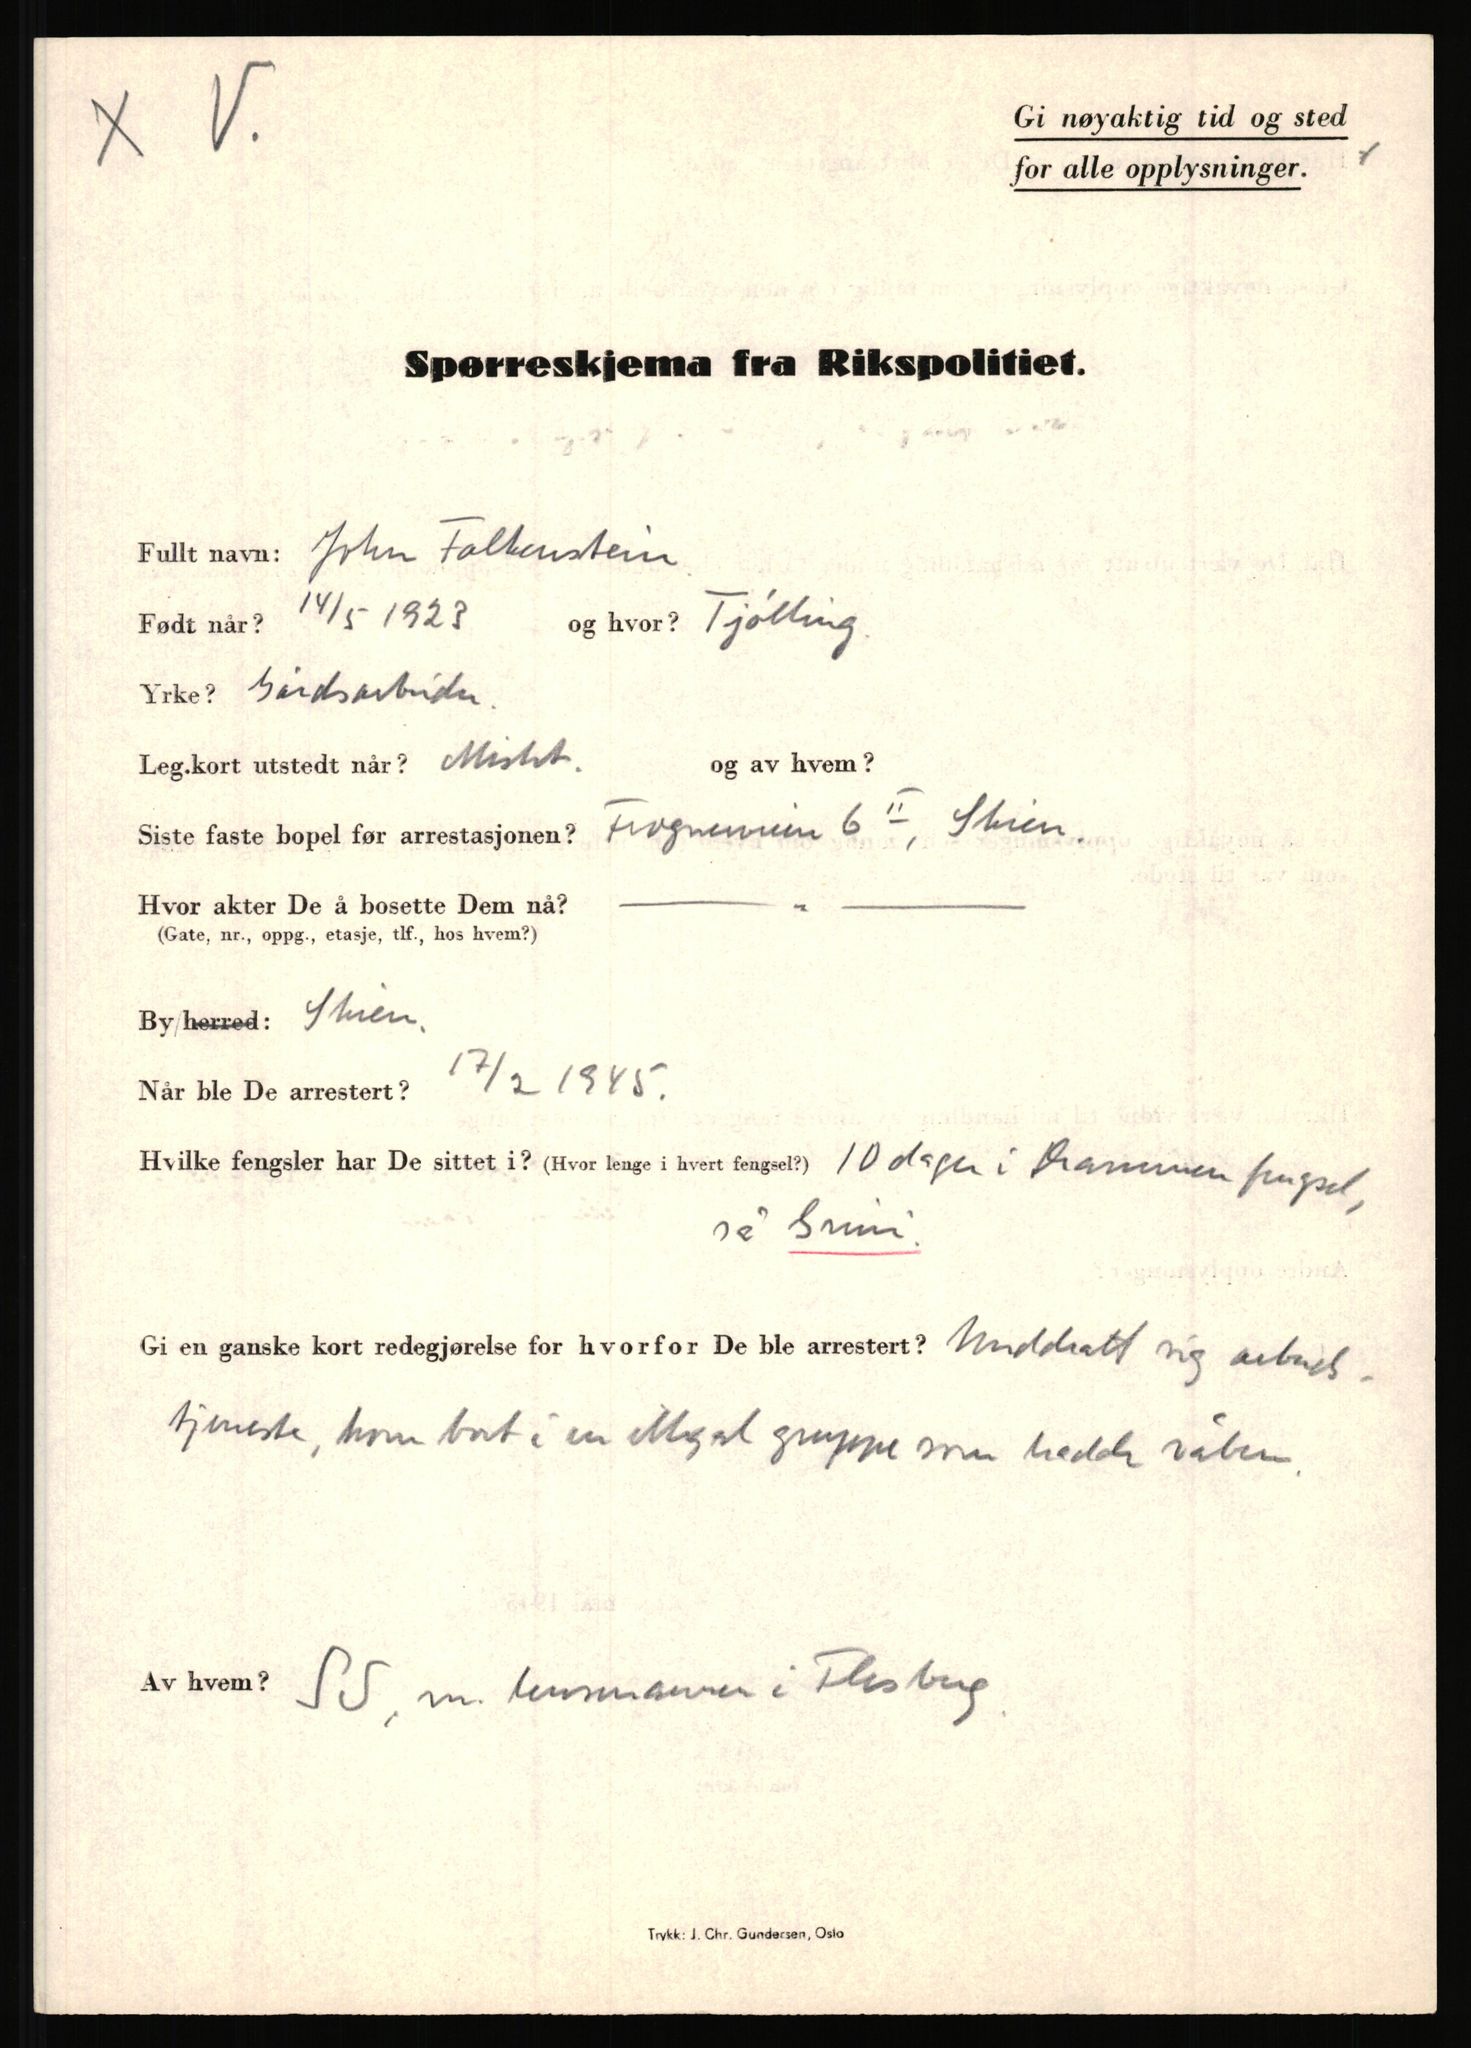 X V.
Gi nøyaktig tid og sted
for alle opplysninger.
Spørreskjema fra Rikspolitiet.
Fullt navn: John Falkenstein.
Født når? 14/5 1923 og hvor? Tjølling.
Yrke? Gårdsarbeider.
Leg.kort utstedt når? Mistet. og av hvem?
Siste faste bopel før arrestasjonen? Frogneveien 6 II, Skien.
Hvor akter De å bosette Dem nå? — " —
(Gate, nr., oppg., etasje, tlf., hos hvem?)
By/herred: Skien.
Når ble De arrestert? 17/2 1945.
Hvilke fengsler har De sittet i? (Hvor lenge i hvert fengsel?) 10 dager i Drammen fengsel,
så Grini.
Gi en ganske kort redegjørelse for hvorfor De ble arrestert? Unddratt sig arbeids-
tjeneste, kom bort i en illegal gruppe som hadde våben.
Av hvem? SS, m. lensmannen i Flesberg.
Trykk: J. Chr. Gundersen, Oslo